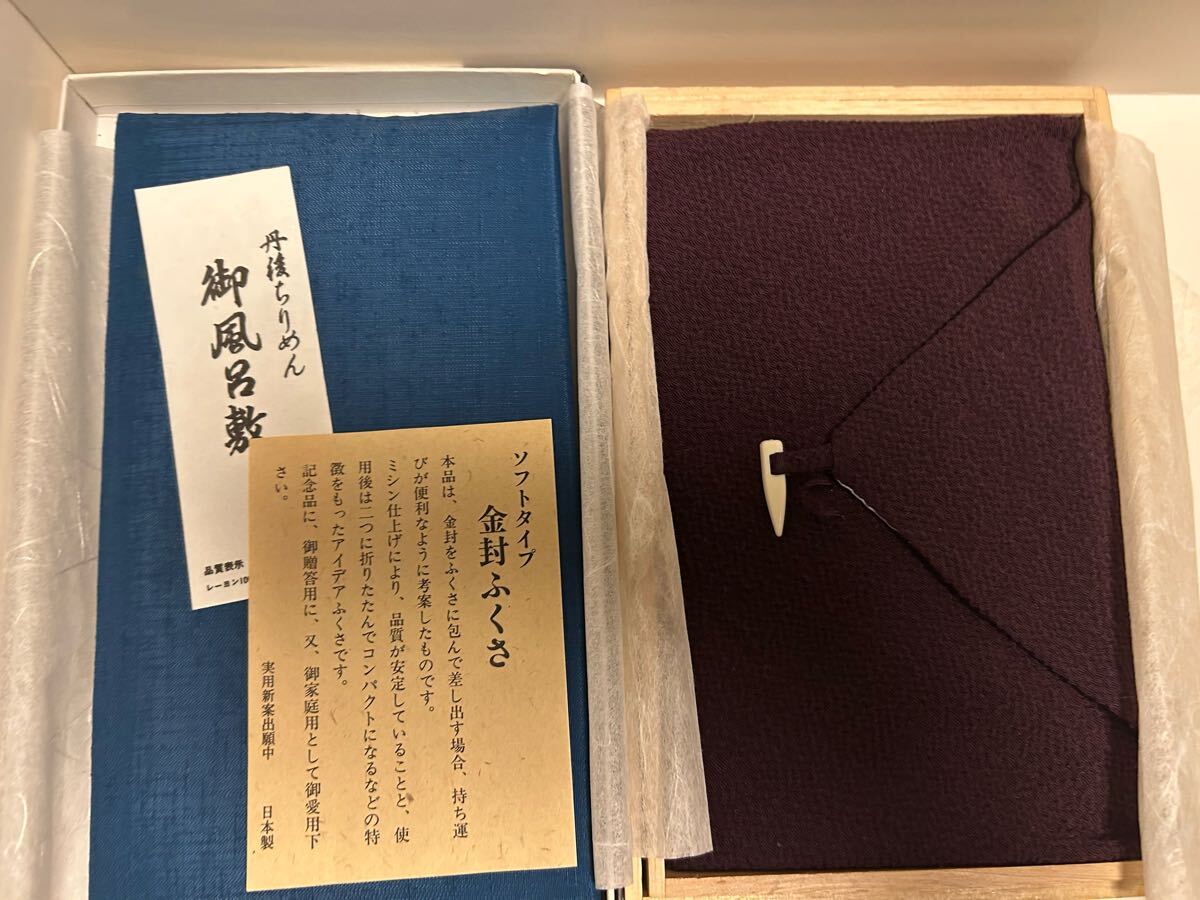 丹後ちりめん
御風呂敷
品質表示
レーヨン10
ソフトタイプ
金封ふくさ
本品は、金封をふくさに包んで差し出す場合、持ち運
びが便利なように考案したものです。
ミシン仕上げにより、品質が安定していることと、使
用後は二つに折りたたんでコンパクトになるなどの特
徴をもったアイデアふくさです。
記念品に、御贈答用に、又、御家庭用として御愛用下
さい。
実用新案出願中 日本製